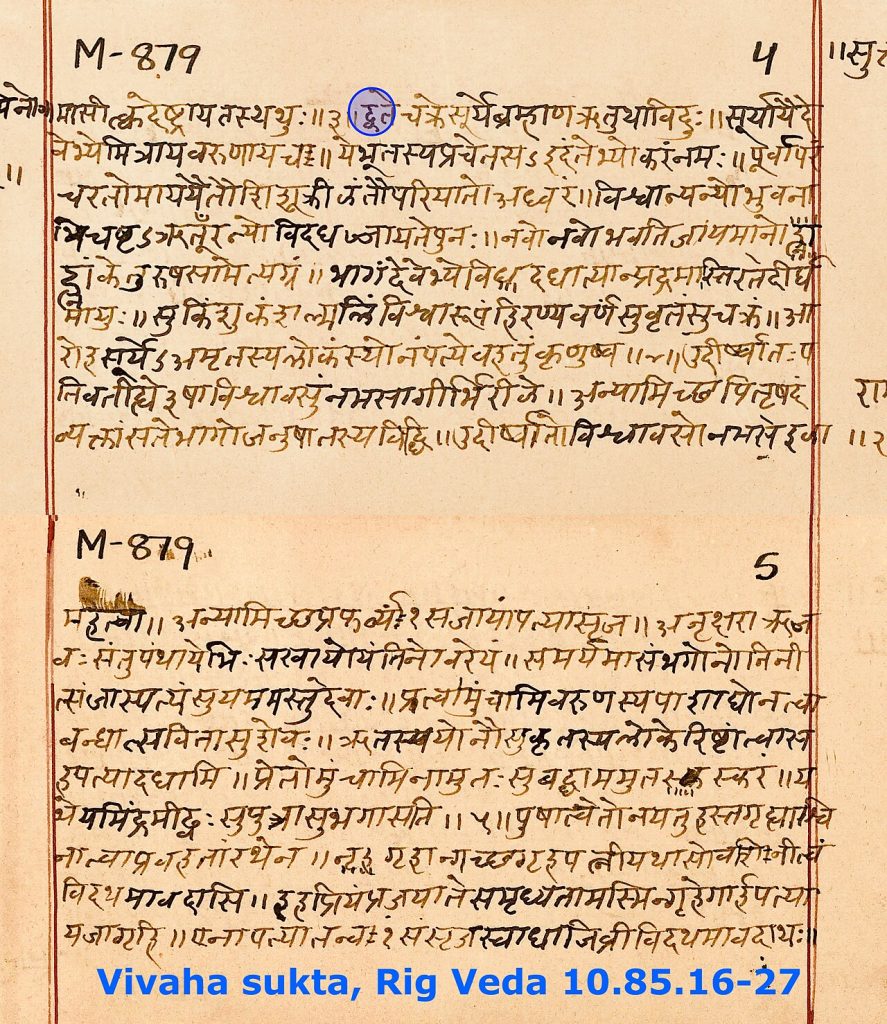 M-879
4
॥सु
मासीत्क्वदेष्ट्रायतस्थथुः॥३॥द्वेतेचक्रेसूर्येब्रह्माणऋतुथाविदुः॥सूर्यायैदे
वेभ्येमित्रायवरुणायच॥येभूतस्यप्रचेतसऽइदंतेभ्योकरंनमः॥पूर्वापरं
चरतोमाययैतौशिशूक्रीळंतौपरियातोअध्वरं॥विश्वान्यन्योभुवना
भिचष्टऽऋतूँरन्योविदधज्जायतेपुनः॥नवोनवोभवतिजायमानोह्नां
केतुरुषसामेत्यग्रं॥भागंदेवेभ्योविदधात्यान्प्रचंद्रमास्तिरतेदीर्घ
मायुः॥सुकिंशुकंशल्मलिंविश्वरूपंहिरण्यवर्णंसुवृतंसुचक्रं॥आ
रोहसूर्येऽअमृतस्यलोकंस्योनंपत्येवहतुंकृणुष्व॥४॥उदीर्ष्वातःप
तिवतीह्येषाविश्वावसुंनमसागीर्भिरीळे॥अन्यामिच्छपितृषदं
व्यक्तांसतेभागोजनुषातस्यविद्धि॥उदीर्ष्वातोविश्वावसोनमसेळा
॥२
M-879
5
महेत्वा॥अन्यामिच्छप्रफर्व्यं१संजायांपत्यासृज॥अनृक्षराऋज
वःसंतुपंथायेभिःसखायोयंतिनोवरेयं॥समर्यमासंभगोनोनिनी
त्संजास्पत्यंसुयममस्तुदेवाः॥प्रत्वामुंचामिवरुणस्यपाशाद्येनत्वा
बन्धात्सवितासुशेवः॥ऋतस्ययोनौसुकृतस्यलोकेरिष्टांत्वास
हपत्यादधामि॥प्रेतोमुंचामिनामुतःसुबद्धाममुतस्करं॥य
थेयमिंद्रमीढ्वःसुपुत्रासुभगासति॥५॥पूषात्वेतोनयतुहस्तगृह्याश्वि
नात्वाप्रवहतांरथेन॥गृहान्गच्छगृहपत्नीयथासोवशिनीत्वं
विदथमावदासि॥इहप्रियंप्रजयातेसमृध्यतामस्मिन्गृहेगार्हपत्या
यजागृहि॥एनापत्यातन्वं१संसृजस्वाधाजिव्रीविदथमावदाथः॥
Vivaha sukta, Rig Veda 10.85.16-27